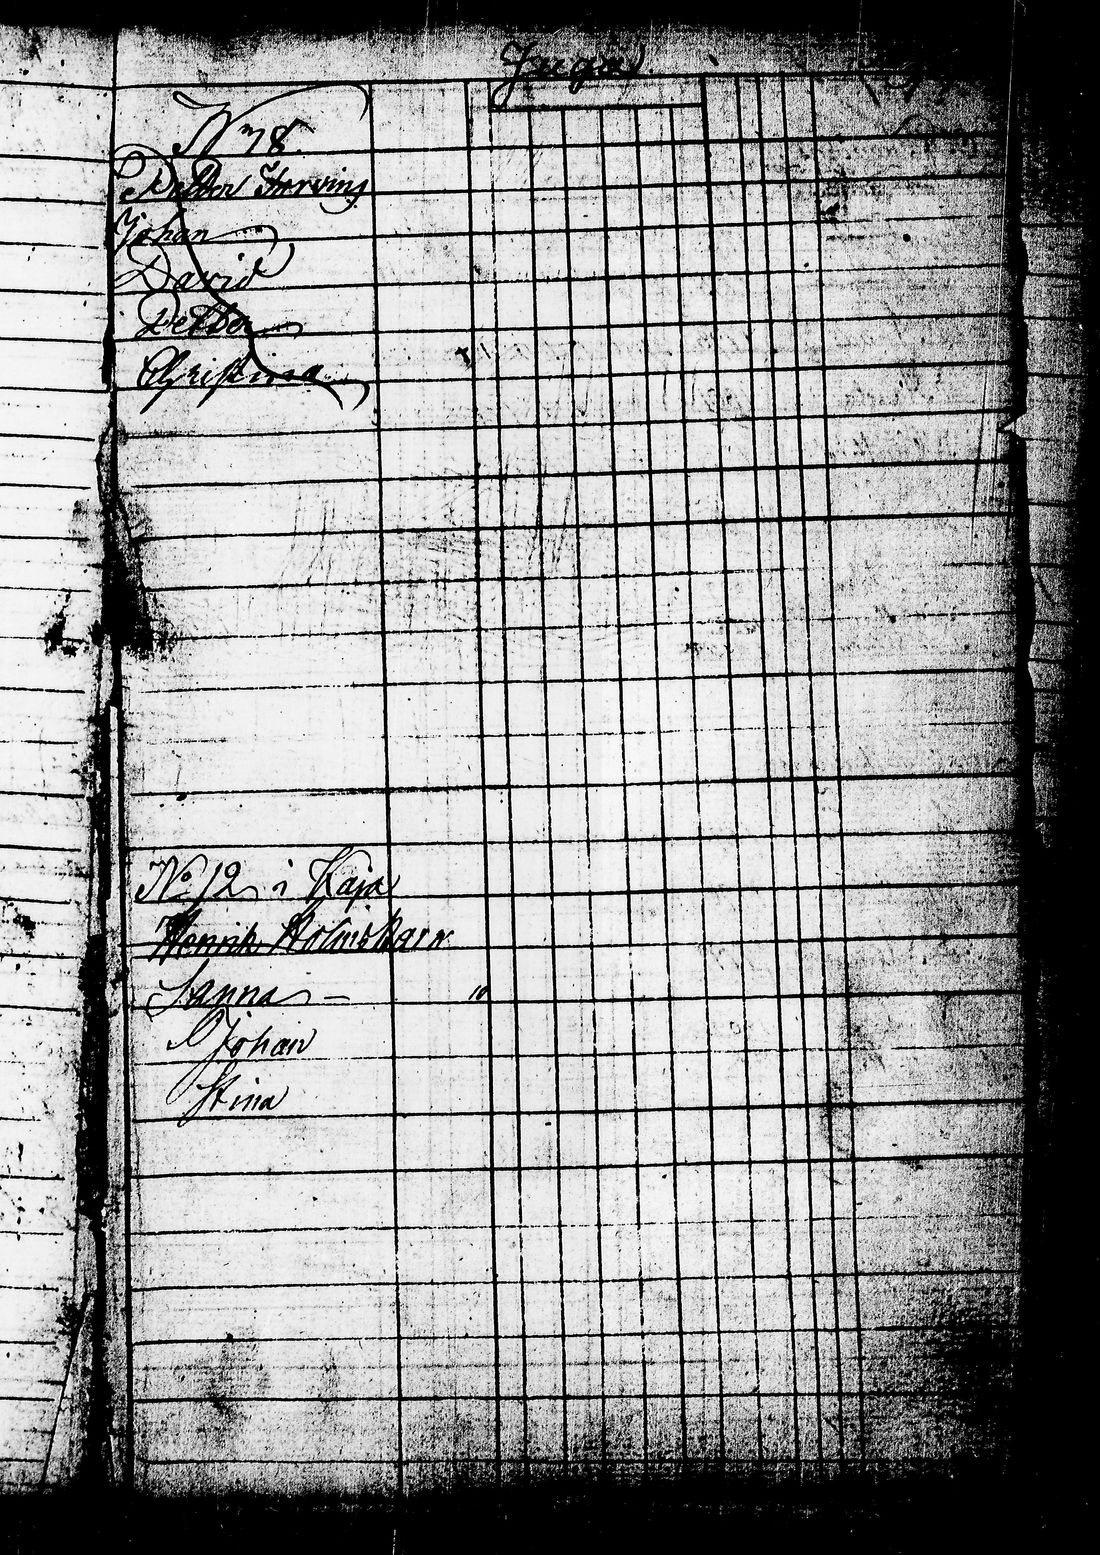 No 78.
Petter Storving
Johan
David
Petter
Christina
No 12 i Kaja
Henrik Holmskarn
Sanna — 10
Johan
Stina